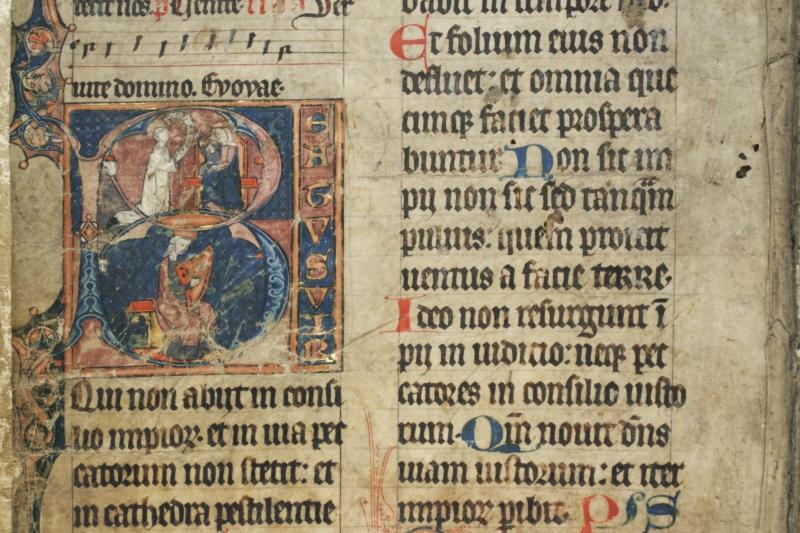 uite domino. Evovae.
B EATUS VIR
Qui non abijt in consi
lio impioꝝ. et in uia pec
catorum non stetit: et
in cathedra pestilentie
Et folium eius non
defluet: et omnia que
cumqꝫ faciet prospera
buntur Non sic im
pij non sic sed tanqͣm
puluis: quem proicit
uentus a facie terre.
Ideo non resurgunt ī
pij in iudicio: neqꝫ pec
catores in consilio iusto
rum. Qm̄ nouit dn̄s
uiam iustorum: et iter
impioꝝ ꝑibit. PsS